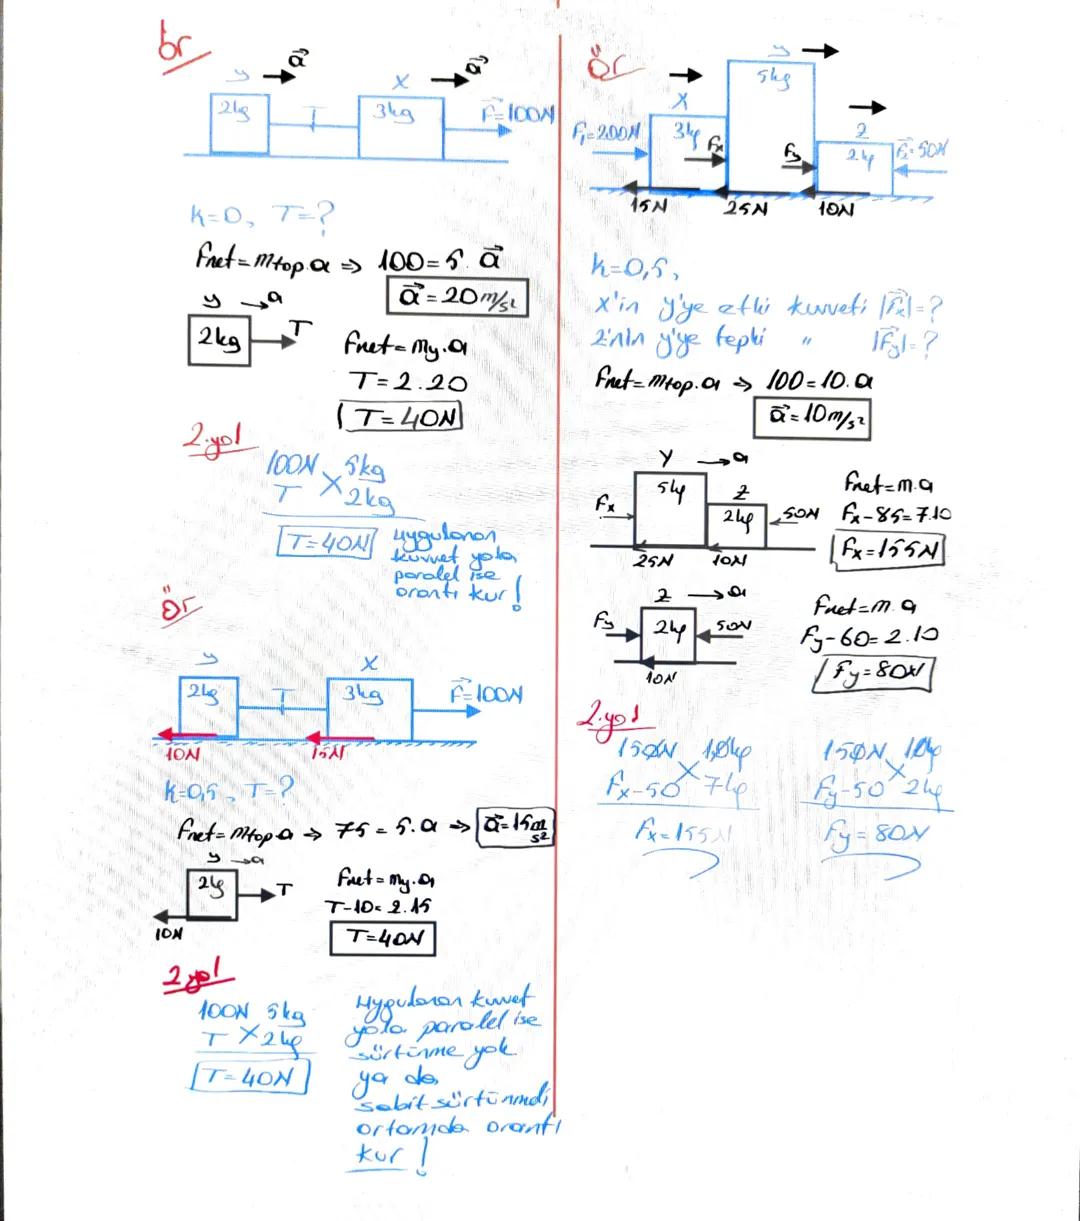 ör
y a⃗ X a⃗
2kg T 3kg F⃗=100N
k=0, T=?
Fnet=mtop.a ⇒ 100=5.a⃗
a⃗=20m/s²
y →a
2kg T
Fnet=my.a
T=2.20
T=40N
2.yol
100N 5kg
T X 2kg
T=40N
uygulanan
kuvvet yola
paralel ise
orantı kur!
ör
y X
2kg T 3kg F⃗=100N
10N 15N
k=0,5, T=?
Fnet=mtop.a → 75=5.a → a⃗=15m/s²
y →a
2kg T
10N
Fnet=my.a
T-10=2.15
T=40N
2.yol
100N 5kg
T X 2kg
T=40N
uygulanan kuvvet
yola paralel ise
sürtünme yok
ya da
sabit sürtünmeli
ortamda orantı
kur!
ör
y
5kg
X
Z
F₁=200N 3kg Fx Fy 2kg F⃗₂=50N
15N 25N 10N
k=0,5,
x'in y'ye etki kuvveti |F⃗x|=?
z'nin y'ye tepki " |F⃗y|=?
Fnet=mtop.a → 100=10.a
a⃗=10m/s²
Y →a
Fx 5kg Z 2kg 50N
25N 10N
Fnet=m.a
Fx-85=7.10
Fx=155N
Z →a
Fy 2kg 50N
10N
Fnet=m.a
Fy-60=2.10
Fy=80N
2.yol
150N 10kg
Fx-50 X 7kg
Fx=155N
150N 10kg
Fy-50 X 2kg
Fy=80N